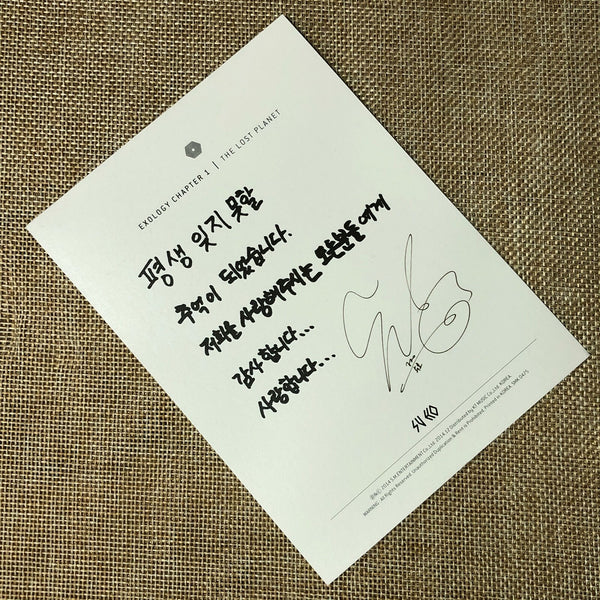 EXOLOGY CHAPTER 1 | THE LOST PLANET
평생 잊지 못할
추억이 되었습니다.
저희를 사랑해주시는 모든분들에게
감사합니다...
사랑합니다...
SUHO
2014 S.M.ENTERTAINMENT Co.,Ltd. 2014.12 Distributed by KT MUSIC Co.,Ltd. KOREA.
WARNING: All Rights Reserved. Unauthorized Duplication & Rent is Prohibited. Printed in KOREA. SMK 0415